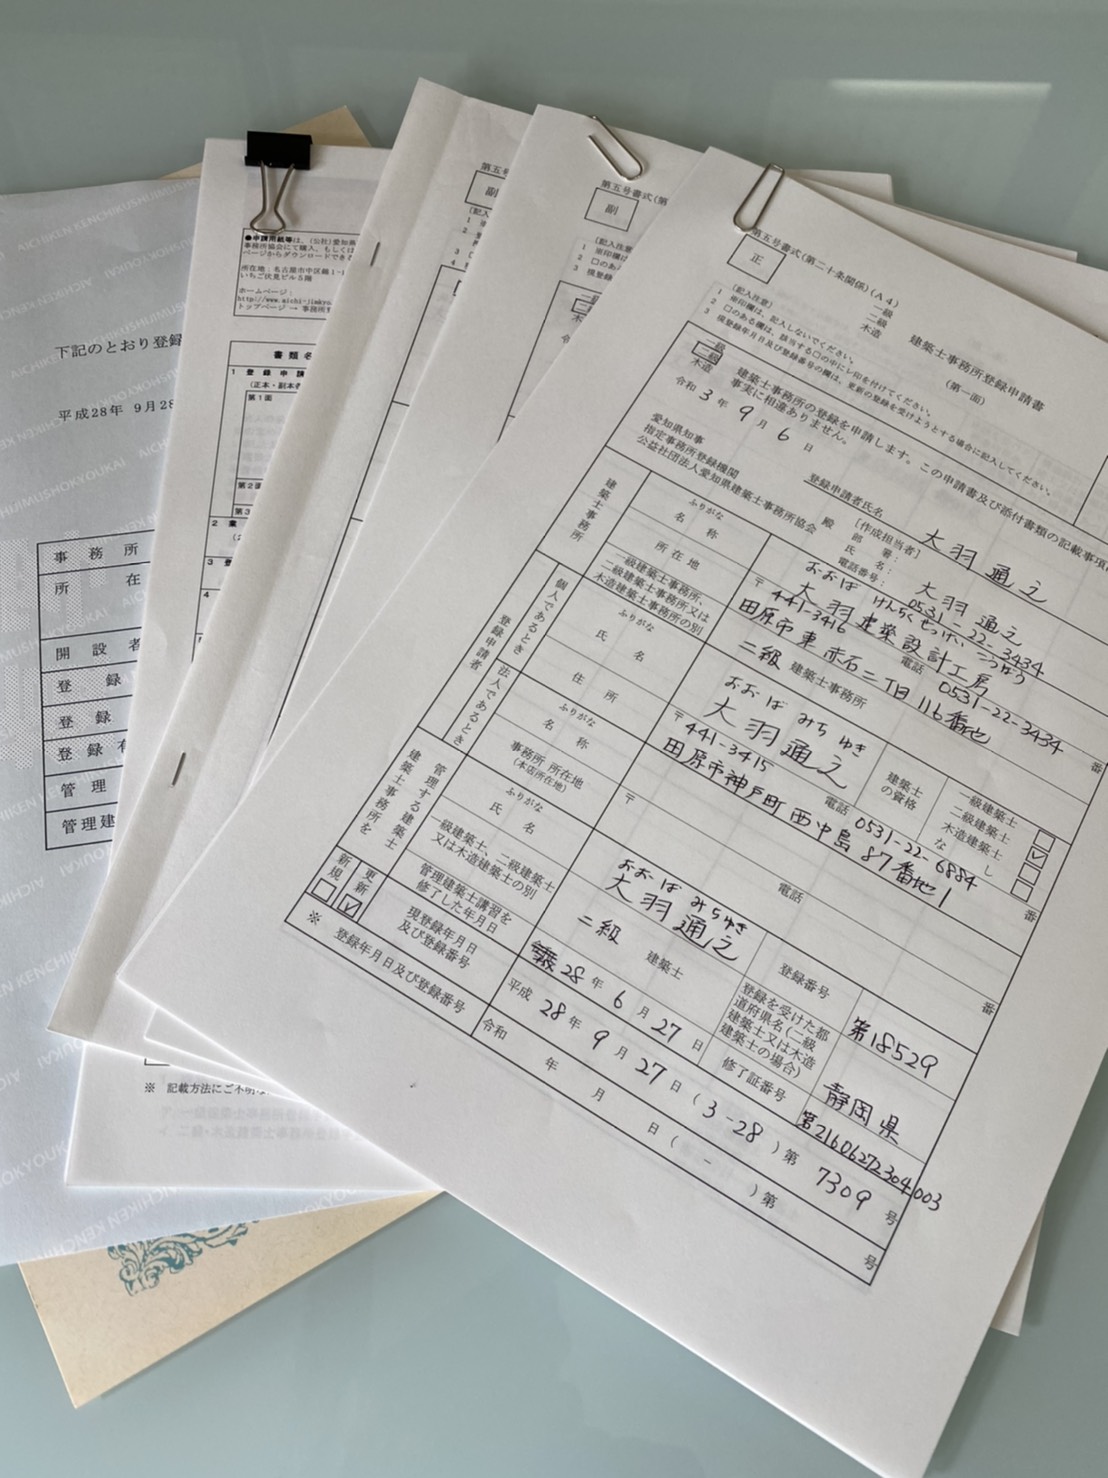 下記のとおり登録
平成28年 9月28
事務所
所在
開設者
登録
登録
登録有
管理
管理建
●申請用紙等は、(公社)愛知県
事務所協会にて購入、もしくは
ページからダウンロードできる
所在地:名古屋市中区錦1-1
いちご伏見ビル5階
ホームページ:
http://www.aichi-jimkyo.
トップページ → 事務所
書類名
1 登録申請
(正本・副本各
第1面
第2面
第3
2 業
3 登
4
※ 記載方法にご不明な
第五号
副
(記入
第五号書式(第
副
(記入注意)
1 ※印欄は
2 □のある
3 現登録年
第五号書式(第二十条関係)(A4)
正
一級
二級
木造
建築士事務所登録申請書
(第一面)
(記入注意)
1 ※印欄は、記入しないでください。
2 □のある欄は、該当する□の中にレ印を付けてください。
3 現登録年月日及び登録番号の欄は、更新の登録を受けようとする場合に記入してください。
一級
二級
木造
建築士事務所の登録を申請します。この申請書及び添付書類の記載事項
事実に相違ありません。
令和 3 年 9 月 6 日
登録申請者氏名 大羽通之
愛知県知事
指定事務所登録機関
公益社団法人愛知県建築士事務所協会 殿
[作成担当者]
部署:
氏名: 大羽通之
電話番号: 0531-22-3434
建築士事務所
ふりがな おおば けんちくせっけいこうぼう
名称 大羽建築設計工房
所在地 〒441-3416 電話 0531-22-3434 番
田原市東赤石二丁目116番地
一級建築士事務所、
二級建築士事務所又は
木造建築士事務所の別
二級 建築士事務所
登録申請者
個人であるとき
ふりがな おおば みちゆき
氏名 大羽通之
建築士の資格
一級建築士
二級建築士 ✓
木造建築士
なし
住所 〒441-3415 電話 0531-22-6884 番
田原市神戸町西中島87番地1
法人であるとき
ふりがな
名称
事務所所在地
(本店所在地)
〒 電話 番
建築士事務所を
管理する建築士
ふりがな おおば みちゆき
氏名 大羽通之
登録番号 第18529
一級建築士、二級建築士
又は木造建築士の別
二級 建築士
登録を受けた都
道府県名(二級
建築士又は木造
建築士の場合)
静岡県
管理建築士講習を
修了した年月日
28 年 6 月 27 日
修了証番号 第21606272304003
新規 更新 ✓
現登録年月日
及び登録番号
平成 28 年 9 月 27 日 (3-28) 第 7309 号
※ 登録年月日及び登録番号
令和 年 月 日 ( - ) 第 号